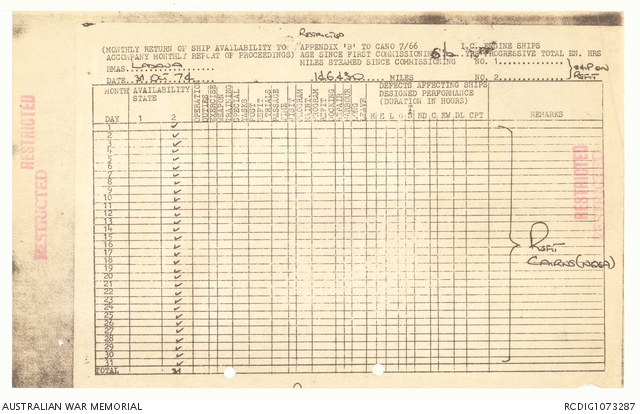 Restricted
(MONTHLY RETURN OF SHIP AVAILABILITY TO APPENDIX 'B' TO CANO 7/66 I.C. ENGINE SHIPS
ACCOMPANY MONTHLY REPORT OF PROCEEDINGS) AGE SINCE FIRST COMMISSIONING 6½ YRS PROGRESSIVE TOTAL EN. HRS
HMAS. LADAVA MILES STEAMED SINCE COMMISSIONING NO. 1.
DATE 31 OCT 74 146430 MILES NO. 2.
SHIP ON REFIT
MONTH AVAILABILITY STATE
OPERATION DUTIES EXERCISE TRAINING SPECIAL TASKS
PROGRAM REFIT DOCKING HARBOUR LONG LEAVE
DEFECTS AFFECTING SHIPS
DESIGNED PERFORMANCE
(DURATION IN HOURS)
DAY 1 2 H E L O ND C EW DL CPT REMARKS
1
2
3
4
5
6
7
8
9
10
11
12
13
14
15
16
17
18
19
20
21
22
23
24
25
26
27
28
29
30
31
TOTAL 31
REFIT
CAIRNS (NQEA)
RESTRICTED
RESTRICTED
RESTRICTED
AUSTRALIAN WAR MEMORIAL RCDIG1073287